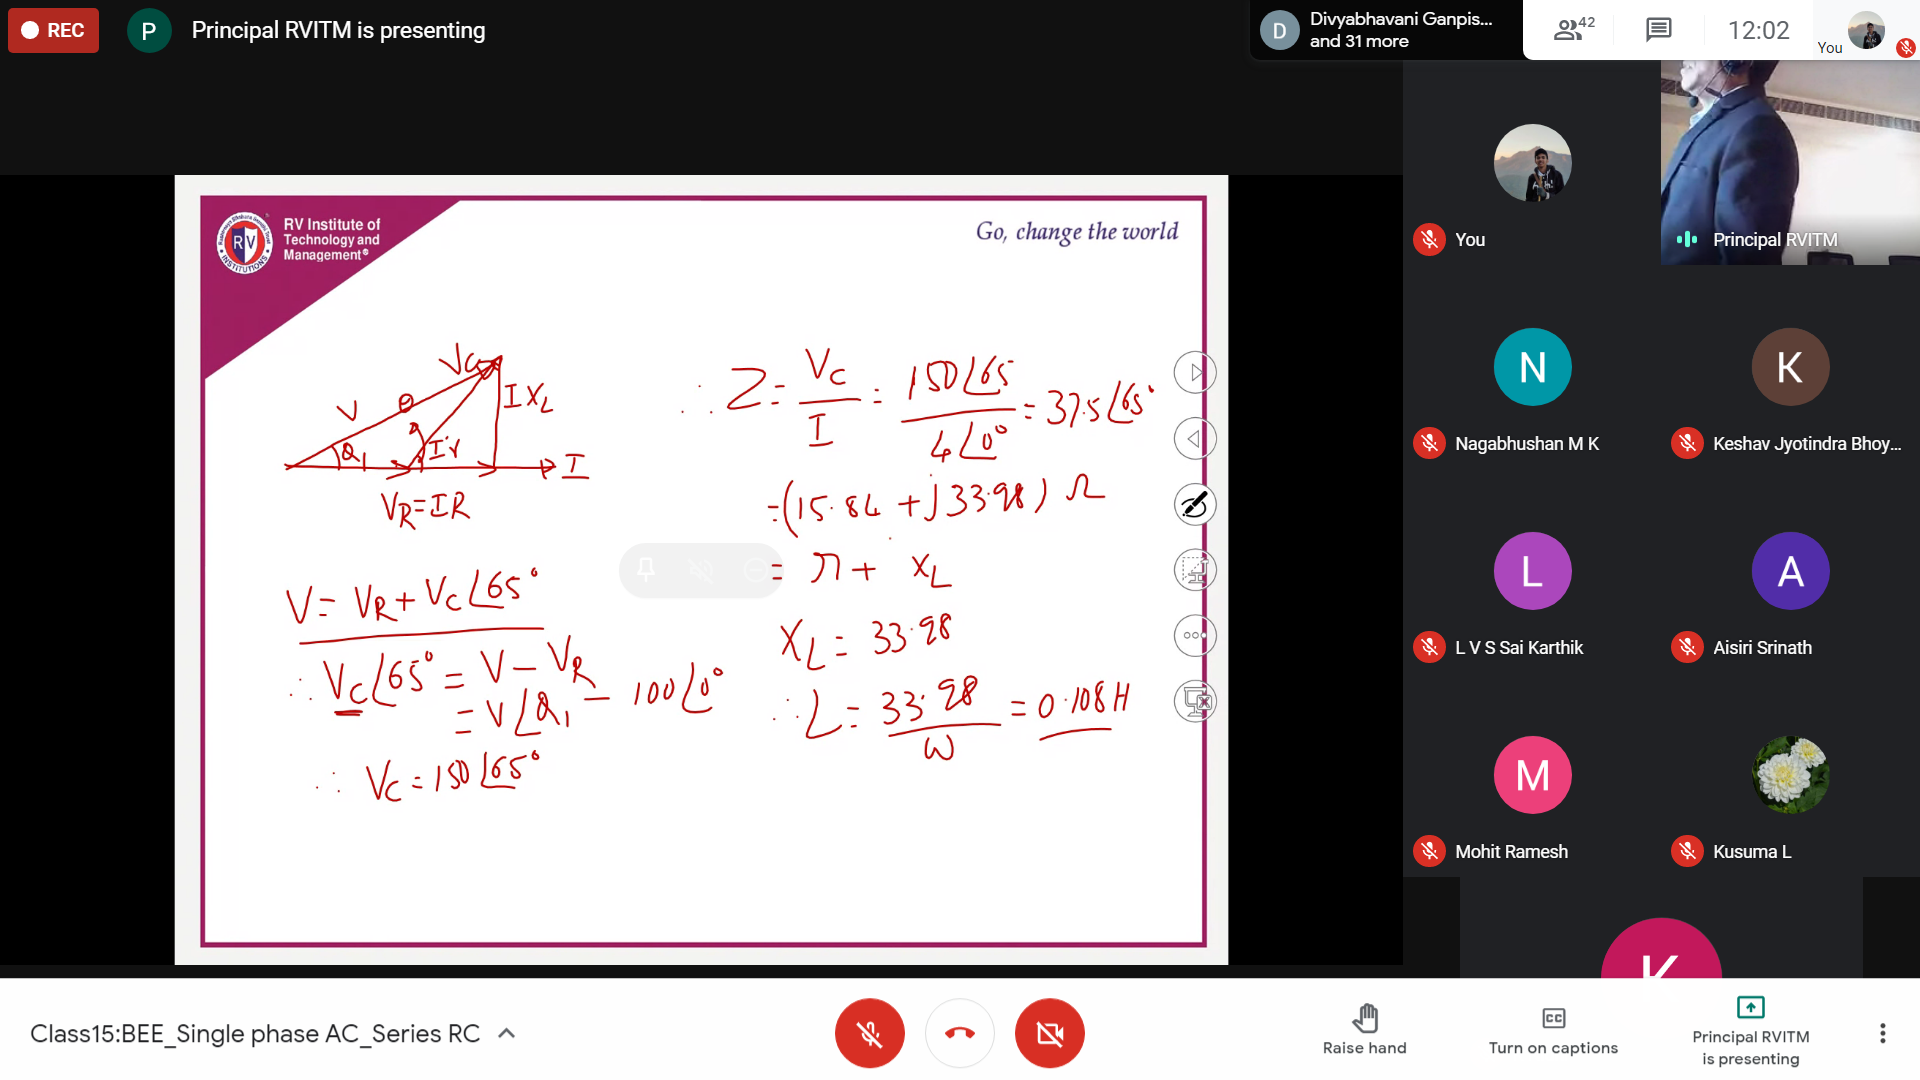 REC
P
Principal RVITM is presenting
D
Divyabhavani Ganpis...
and 31 more
42
12:02
You
RV
INSTITUTIONS
RV Institute of
Technology and
Management®
Go, change the world
Vc
V
θ
IXL
θ1
Ir
I
VR=IR
V= VR+ Vc∠65°
∴ Vc∠65° = V − VR
= V∠θ1 − 100∠0°
∴ Vc = 150∠65°
∴ Z = Vc/I = 150∠65/4∠0° = 37.5∠65°
=(15.84 + j33.98) Ω
= r + XL
XL = 33.98
∴ L = 33.98/ω = 0.108H
You
Principal RVITM
N
Nagabhushan M K
K
Keshav Jyotindra Bhoy...
L
L V S Sai Karthik
A
Aisiri Srinath
M
Mohit Ramesh
Kusuma L
K
Class15:BEE_Single phase AC_Series RC
Raise hand
CC
Turn on captions
Principal RVITM
is presenting